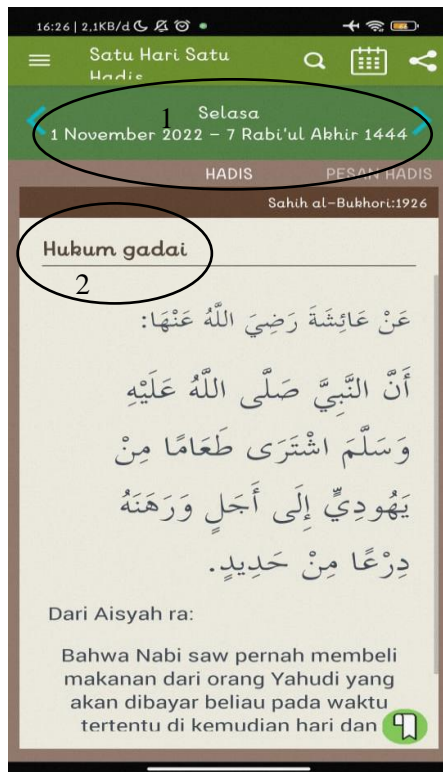 16:26 | 2,1KB/d
Satu Hari Satu
Hadis
1
Selasa
1 November 2022 – 7 Rabi'ul Akhir 1444
HADIS PESAN HADIS
Sahih al-Bukhori:1926
Hukum gadai
2
عَنْ عَائِشَةَ رَضِيَ اللَّهُ عَنْهَا:
أَنَّ النَّبِيَّ صَلَّى اللَّهُ عَلَيْهِ
وَسَلَّمَ اشْتَرَى طَعَامًا مِنْ
يَهُودِيٍّ إِلَى أَجَلٍ وَرَهَنَهُ
دِرْعًا مِنْ حَدِيدٍ.
Dari Aisyah ra:
Bahwa Nabi saw pernah membeli
makanan dari orang Yahudi yang
akan dibayar beliau pada waktu
tertentu di kemudian hari dan